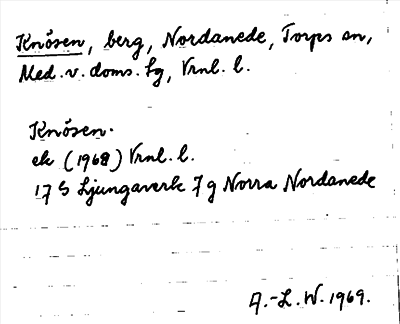 Knösen, berg, Nordanede, Torps sn,
Med. v. doms. lg, Vrnl. l.
Knösen.
ek (1968) Vrnl. l.
17 G Ljungaverk 7 g Norra Nordanede
A.-L. W. 1969.